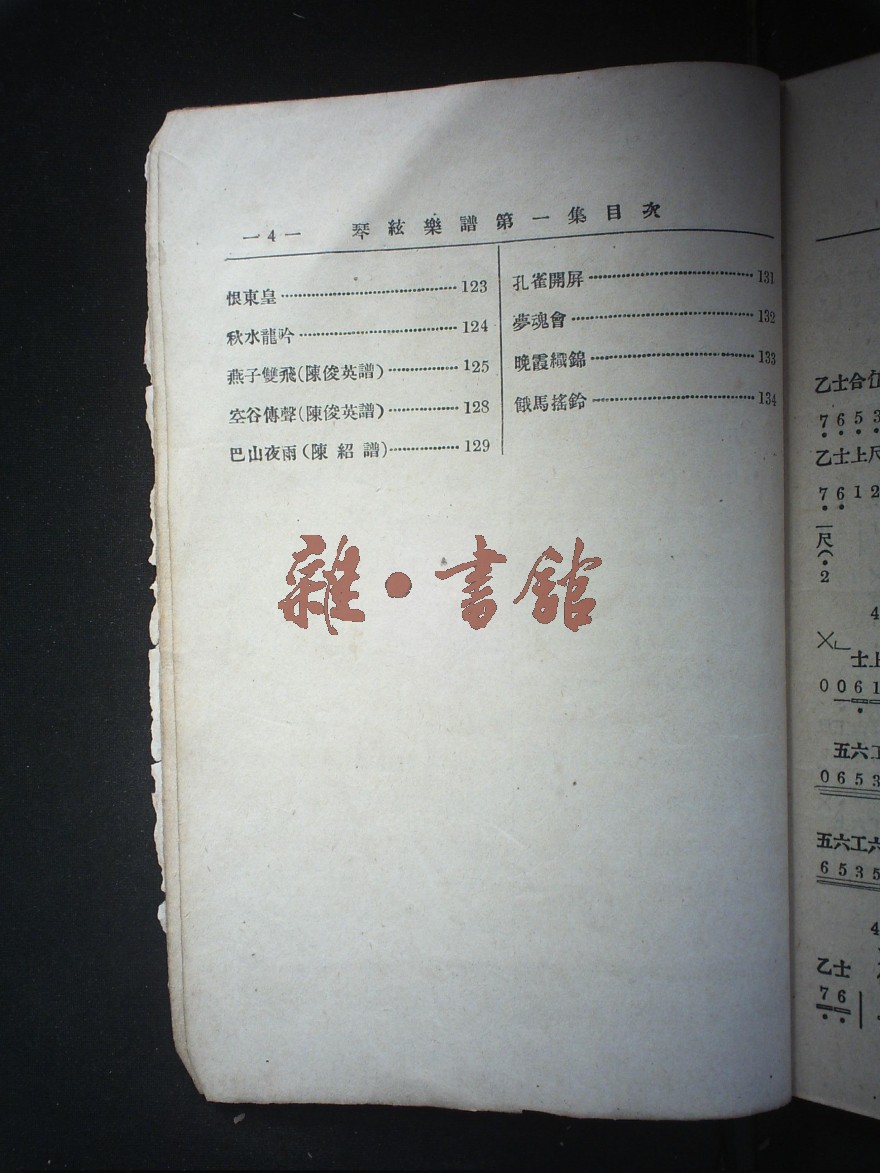 —4— 琴絃樂譜第一集目次
恨東皇 123
秋水龍吟 124
燕子雙飛(陳俊英譜) 125
空谷傳聲(陳俊英譜) 128
巴山夜雨(陳紹譜) 129
孔雀開屏 131
夢魂會 132
晚霞織錦 133
餓馬搖鈴 134
雜·書館
乙士合仜
7 6 5 3
乙士上尺
7 6 1 2
一尺
2
4
士上
0 0 6 1
五六工
0 6 5 3
五六工六
6 5 3 5
4
乙士
7 6